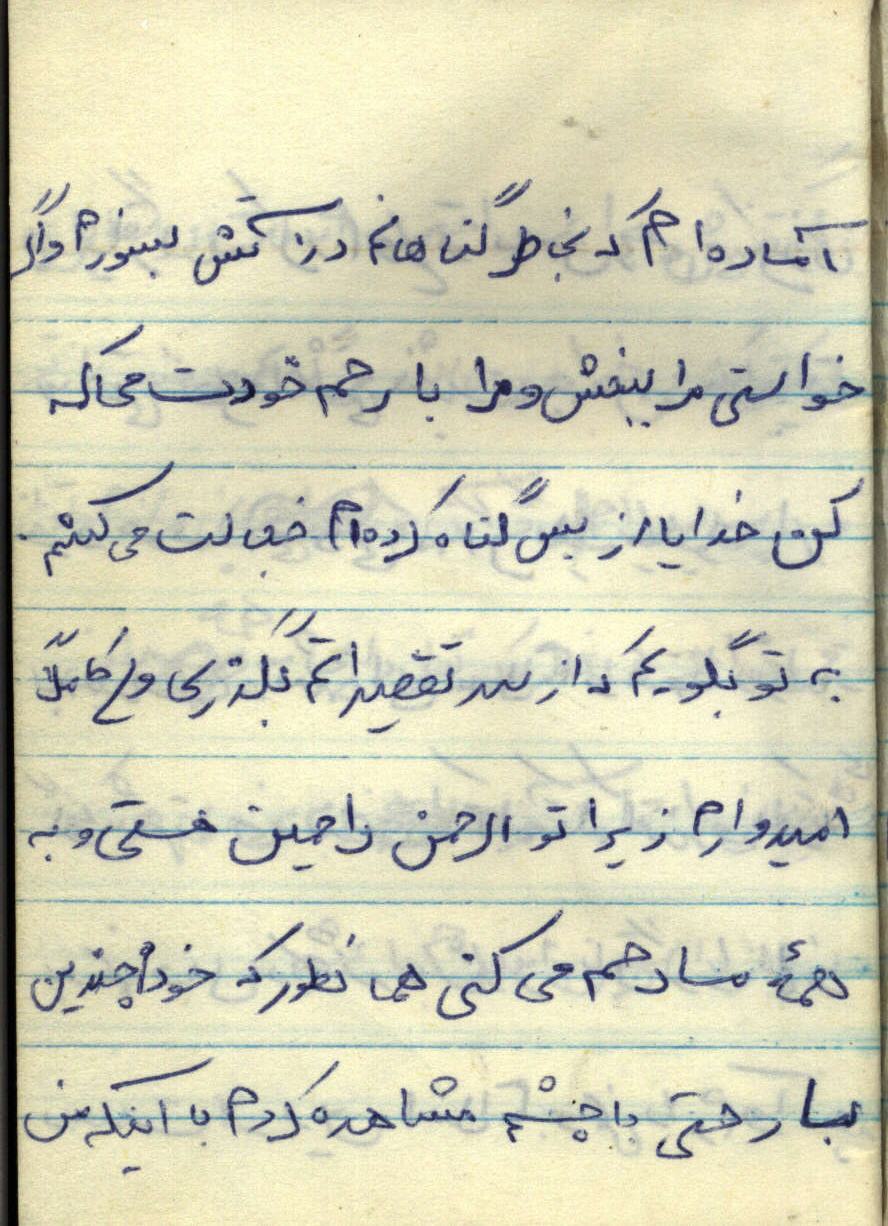 آماده‌ام که بخاطر گناهانم در آتش بسوزم واگر
خواستی مرا ببخش و مرا با رحم خودت محاکمه
کن خدایا از بس گناه کرده‌ام خجالت می کشم.
به تو بگویم که از سر تقصیراتم بگذری ولی کاملاً
امیدوارم زیرا تو الرحمن راحمین هستی و به
همهٔ ما رحم می کنی همانطور که خودم چندین
بار حتی با چشم مشاهده کردم با اینکه من